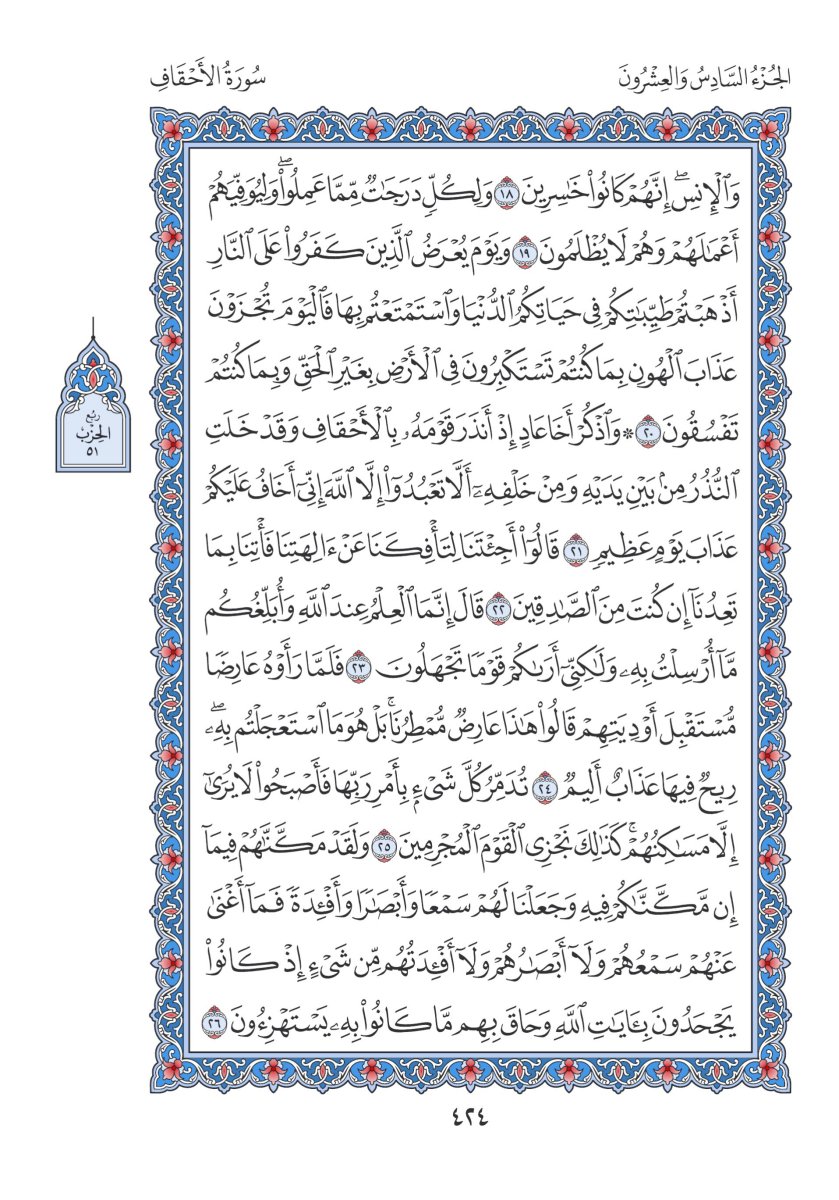 الجُزْءُ السَّادِسُ وَالعِشْرُونَ
سُورَةُ الأَحْقَافِ
وَٱلْإِنسِۖ إِنَّهُمْ كَانُوا۟ خَٰسِرِينَ ١٨ وَلِكُلٍّ دَرَجَٰتٌ مِّمَّا عَمِلُوا۟ۖ وَلِيُوَفِّيَهُمْ
أَعْمَٰلَهُمْ وَهُمْ لَا يُظْلَمُونَ ١٩ وَيَوْمَ يُعْرَضُ ٱلَّذِينَ كَفَرُوا۟ عَلَى ٱلنَّارِ
أَذْهَبْتُمْ طَيِّبَٰتِكُمْ فِى حَيَاتِكُمُ ٱلدُّنْيَا وَٱسْتَمْتَعْتُم بِهَا فَٱلْيَوْمَ تُجْزَوْنَ
عَذَابَ ٱلْهُونِ بِمَا كُنتُمْ تَسْتَكْبِرُونَ فِى ٱلْأَرْضِ بِغَيْرِ ٱلْحَقِّ وَبِمَا كُنتُمْ
تَفْسُقُونَ ٢٠ ۞ وَٱذْكُرْ أَخَا عَادٍ إِذْ أَنذَرَ قَوْمَهُۥ بِٱلْأَحْقَافِ وَقَدْ خَلَتِ
ٱلنُّذُرُ مِنۢ بَيْنِ يَدَيْهِ وَمِنْ خَلْفِهِۦٓ أَلَّا تَعْبُدُوٓا۟ إِلَّا ٱللَّهَ إِنِّىٓ أَخَافُ عَلَيْكُمْ
عَذَابَ يَوْمٍ عَظِيمٍ ٢١ قَالُوٓا۟ أَجِئْتَنَا لِتَأْفِكَنَا عَنْ ءَالِهَتِنَا فَأْتِنَا بِمَا
تَعِدُنَآ إِن كُنتَ مِنَ ٱلصَّٰدِقِينَ ٢٢ قَالَ إِنَّمَا ٱلْعِلْمُ عِندَ ٱللَّهِ وَأُبَلِّغُكُم
مَّآ أُرْسِلْتُ بِهِۦ وَلَٰكِنِّىٓ أَرَىٰكُمْ قَوْمًا تَجْهَلُونَ ٢٣ فَلَمَّا رَأَوْهُ عَارِضًا
مُّسْتَقْبِلَ أَوْدِيَتِهِمْ قَالُوا۟ هَٰذَا عَارِضٌ مُّمْطِرُنَاۚ بَلْ هُوَ مَا ٱسْتَعْجَلْتُم بِهِۦۖ
رِيحٌ فِيهَا عَذَابٌ أَلِيمٌ ٢٤ تُدَمِّرُ كُلَّ شَىْءٍۭ بِأَمْرِ رَبِّهَا فَأَصْبَحُوا۟ لَا يُرَىٰٓ
إِلَّا مَسَٰكِنُهُمْۚ كَذَٰلِكَ نَجْزِى ٱلْقَوْمَ ٱلْمُجْرِمِينَ ٢٥ وَلَقَدْ مَكَّنَّٰهُمْ فِيمَآ
إِن مَّكَّنَّٰكُمْ فِيهِ وَجَعَلْنَا لَهُمْ سَمْعًا وَأَبْصَٰرًا وَأَفْـِٔدَةً فَمَآ أَغْنَىٰ
عَنْهُمْ سَمْعُهُمْ وَلَآ أَبْصَٰرُهُمْ وَلَآ أَفْـِٔدَتُهُم مِّن شَىْءٍ إِذْ كَانُوا۟
يَجْحَدُونَ بِـَٔايَٰتِ ٱللَّهِ وَحَاقَ بِهِم مَّا كَانُوا۟ بِهِۦ يَسْتَهْزِءُونَ ٢٦
رُبُع
الحِزْب
٥١
٤٢٤